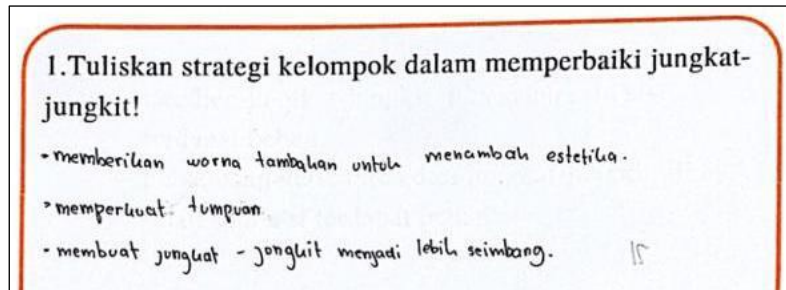 1.Tuliskan strategi kelompok dalam memperbaiki jungkat-
jungkit!
- memberikan worna tambahan untuk menambah estetika.
- memperkuat tumpuan
- membuat jungkat - jongkit menjadi lebih seimbang. 15